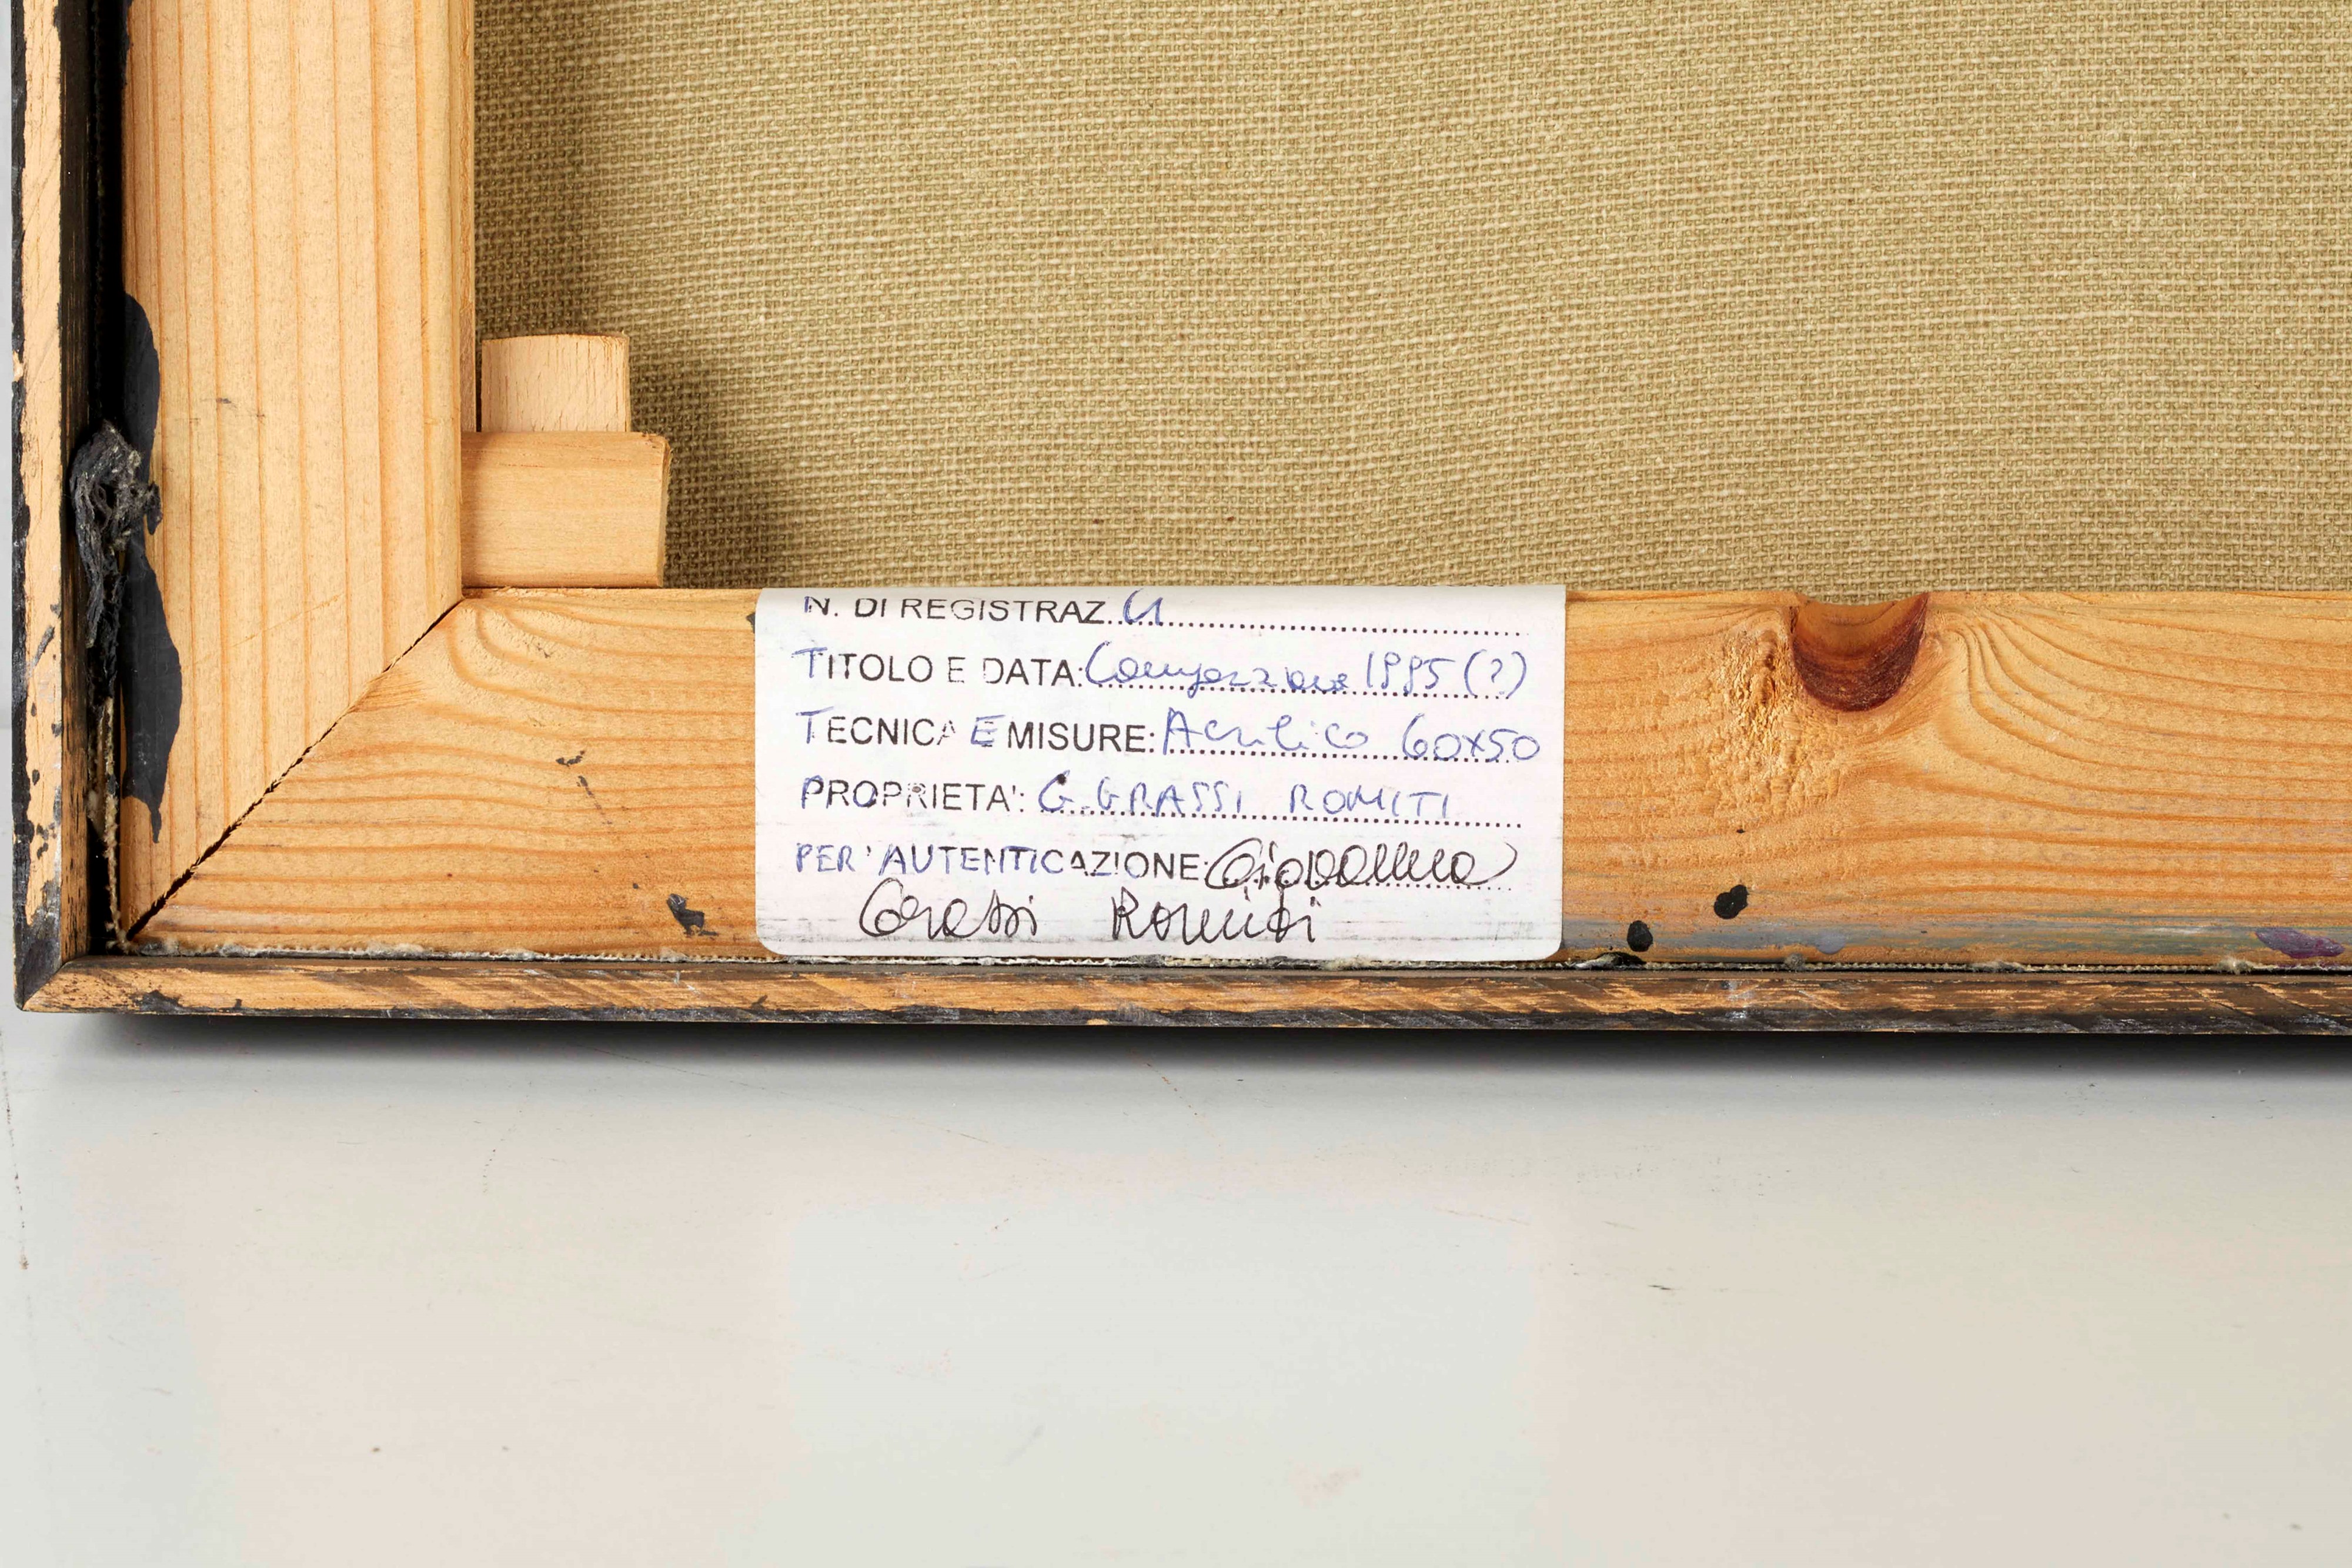 N. DI REGISTRAZ.
TITOLO E DATA: Composizione 1985 (?)
TECNICA E MISURE: Acrilico 60x50
PROPRIETA': G. GRASSI ROMITI
PER' AUTENTICAZIONE: Giovanna
Grassi Romiti